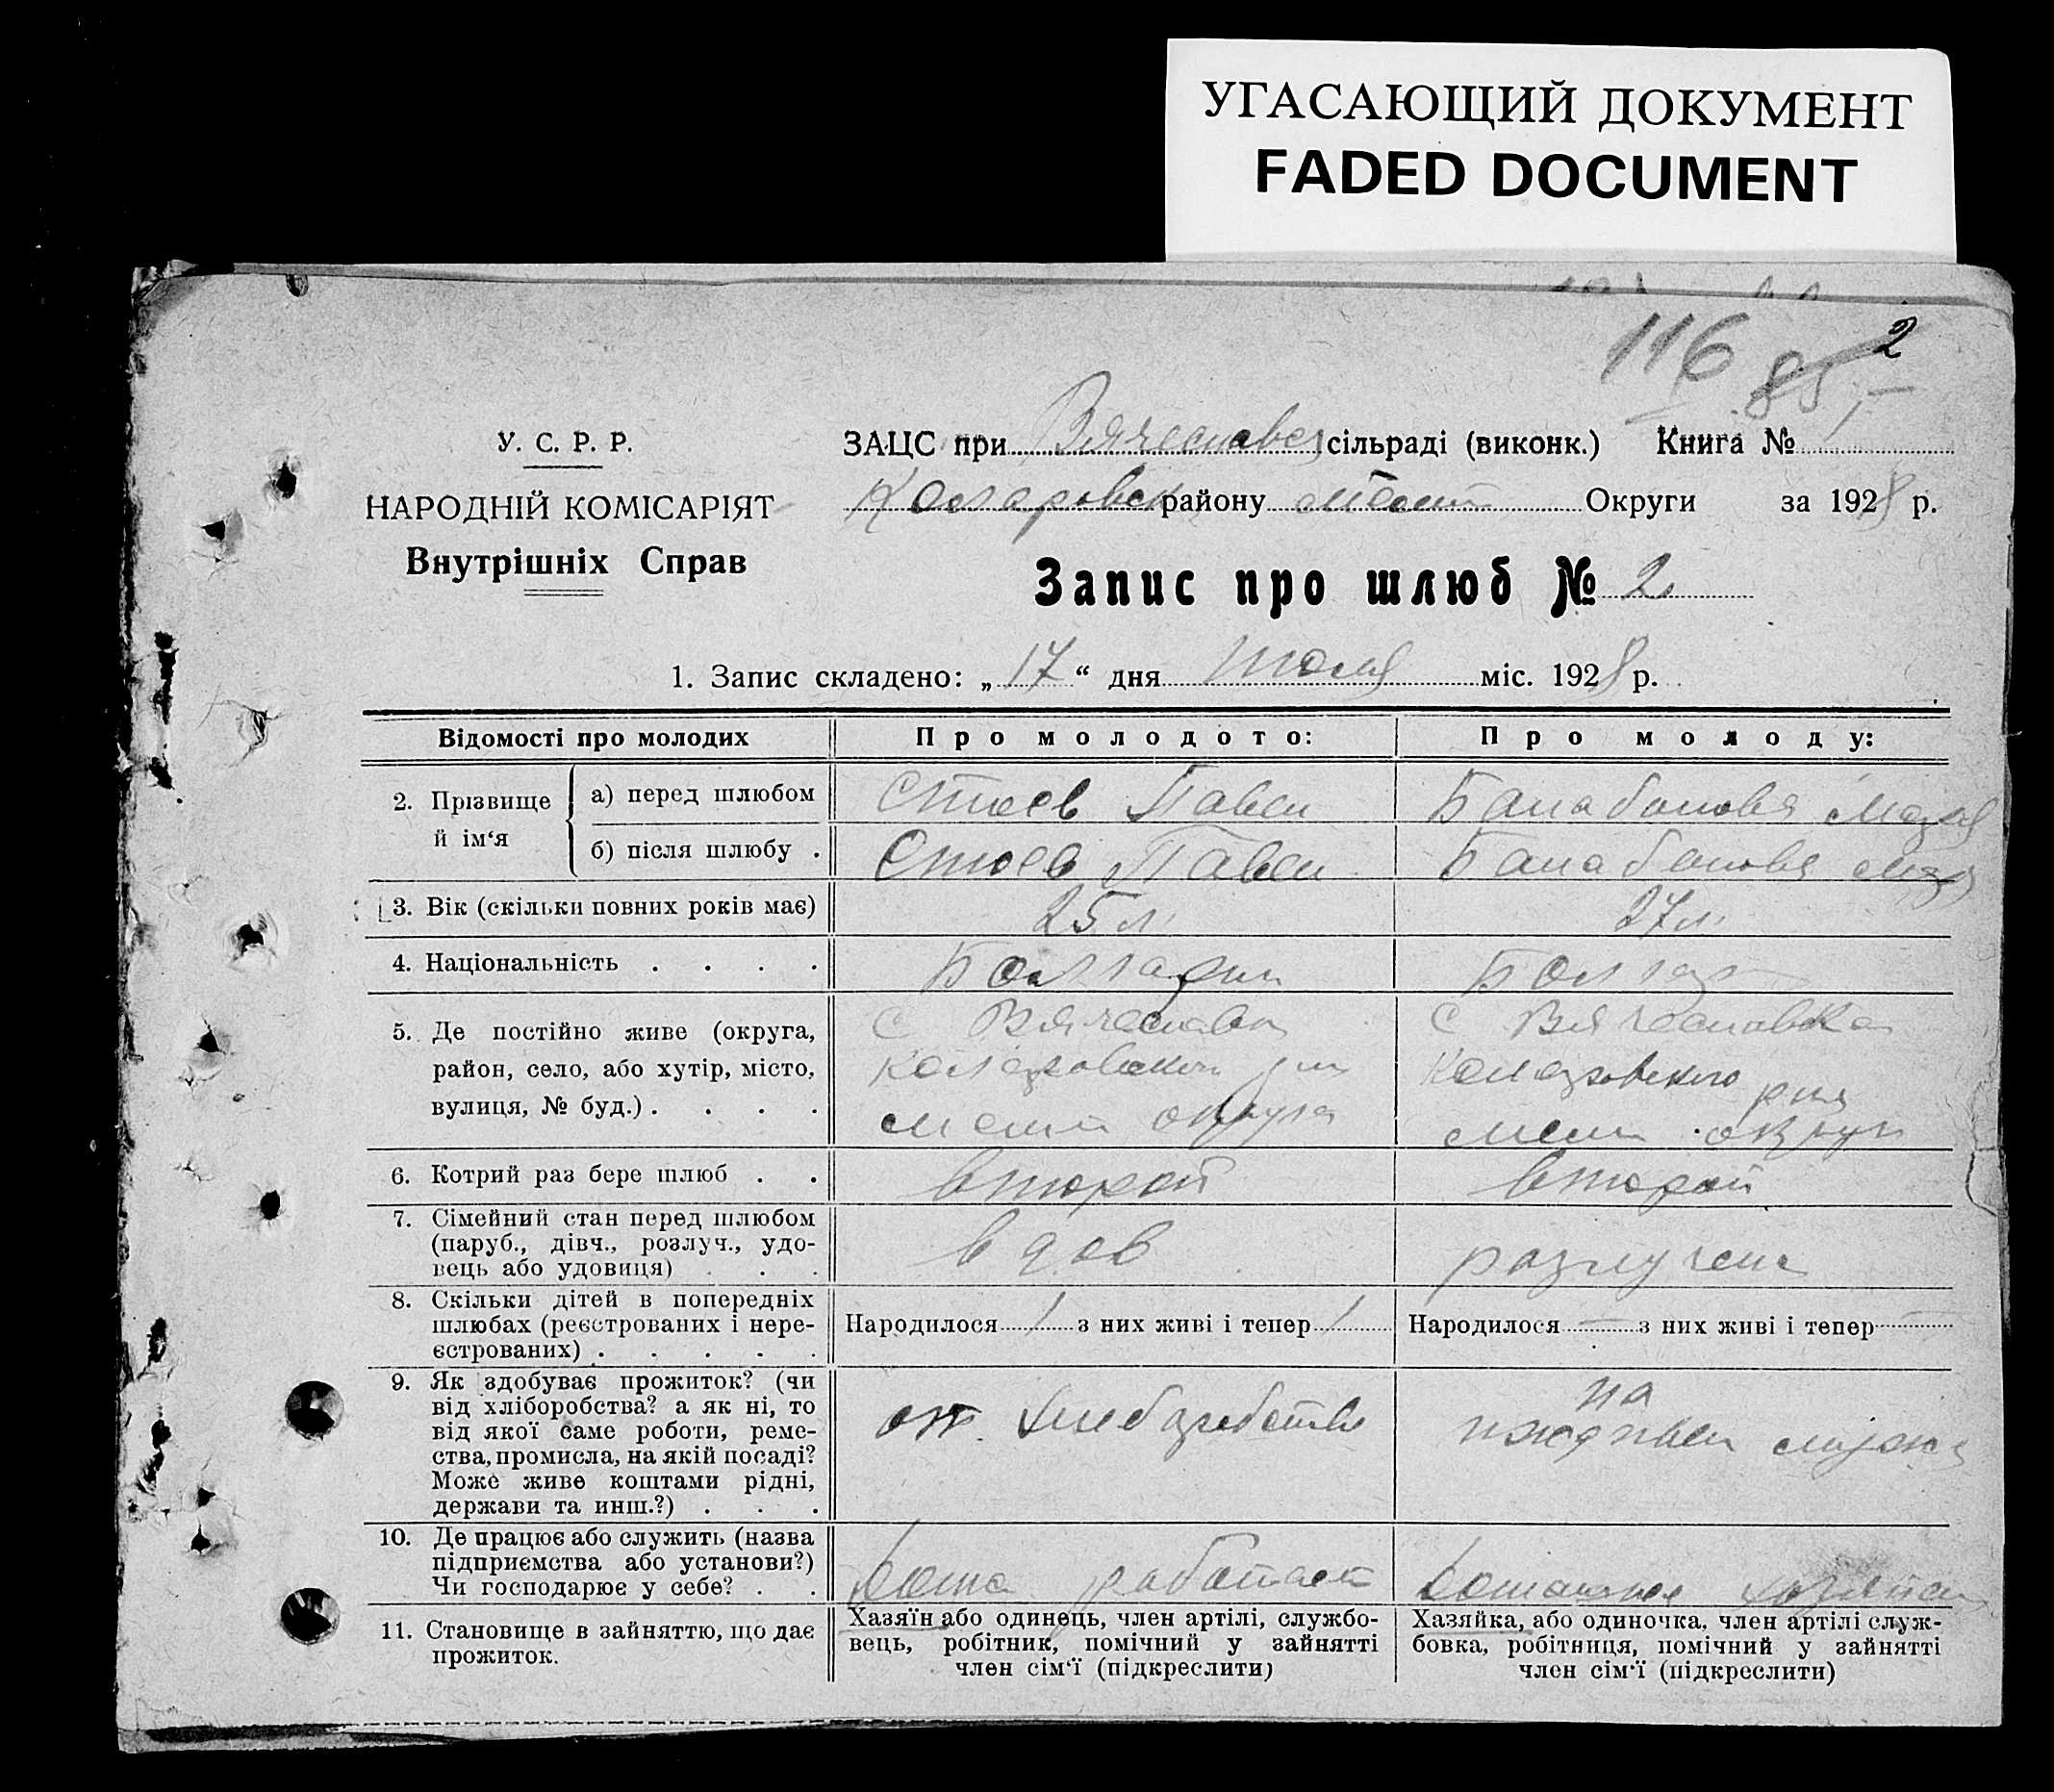 УГАСАЮЩИЙ ДОКУМЕНТ
FADED DOCUMENT
2
116 85
У. С. Р. Р.
НАРОДНІЙ КОМІСАРІЯТ
Внутрішніх Справ
ЗАЦС при Вячеславс сільраді (виконк.) Книга № 1
Коларовск району Мелит Округи за 1928 р.
Запис про шлюб № 2
1. Запис складено: „17“ дня Июля міс. 1928 р.
Відомості про молодих Про молодого: Про молоду:
2. Прізвище й ім‘я
а) перед шлюбом Стоев Павел Балабанова
б) після шлюбу . Стоев Павел Балабанова
3. Вік (скільки повних років має) 25 л 27 л
4. Національність . . . . Болгарин Болгар
5. Де постійно живе (округа, район, село, або хутір, місто, вулиця, № буд.) . . . .
с Вячеславка
Коларовского рна
Мелит округа
с Вячеславка
Коларовского рна
Мелит округ
6. Котрий раз бере шлюб . . второй второй
7. Сімейний стан перед шлюбом
(паруб., дівч., розлуч., удо-
вець або удовиця) . . . вдов разлучена
8. Скільки дітей в попередніх
шлюбах (реєстрованих і нере-
єстрованих) . . . . .
Народилося 1 з них живі і тепер 1
Народилося — з них живі і тепер —
9. Як здобуває прожиток? (чи
від хліборобства? а як ні, то
від якої саме роботи, реме-
ства, промисла, на якій посаді?
Може живе коштами рідні,
держави та инш.?) . . .
от хлеборобства
на
иждивен мужа
10. Де працює або служить (назва
підприємства або установи?)
Чи господарює у себе? . .
дома работает
домашнее хозяйство
11. Становище в зайняттю, що дає
прожиток.
Хазяїн або одинець, член артілі, службо-
вець, робітник, помічний у зайнятті
член сім‘ї (підкреслити)
Хазяйка, або одиночка, член артілі служ-
бовка, робітниця, помічний у зайнятті
член сім‘ї (підкреслити)